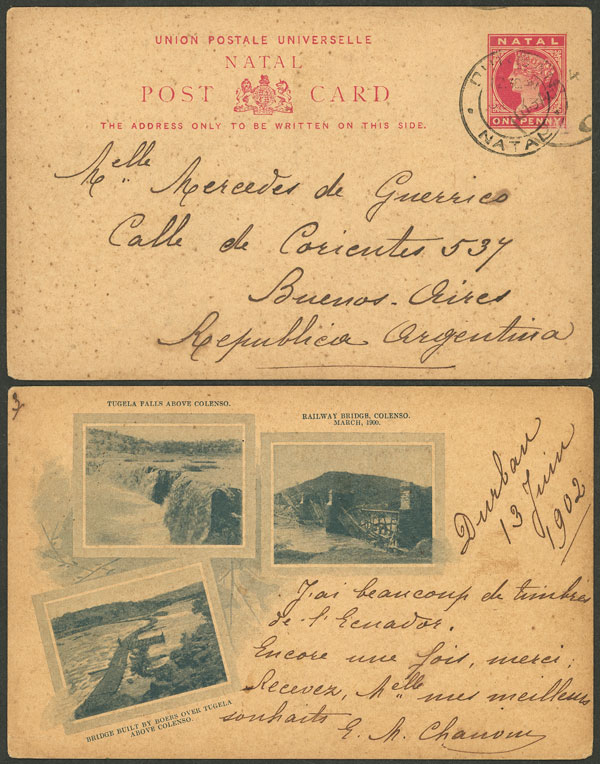 UNION POSTALE UNIVERSELLE
NATAL
POST CARD
THE ADDRESS ONLY TO BE WRITTEN ON THIS SIDE.
NATAL
ONE PENNY
NATAL
Melle Mercedes de Guerrico
Calle de Corientes 537
Buenos-Aires
Republica Argentina
TUGELA FALLS ABOVE COLENSO.
RAILWAY BRIDGE, COLENSO.
MARCH, 1900.
BRIDGE BUILT BY BOERS OVER TUGELA
ABOVE COLENSO.
Durban
13 Juin
1902
J'ai beaucoup de timbres
de l'Ecuador.
Encore une fois, merci;
Recevez, Melle mes meilleurs
souhaits
E. M.